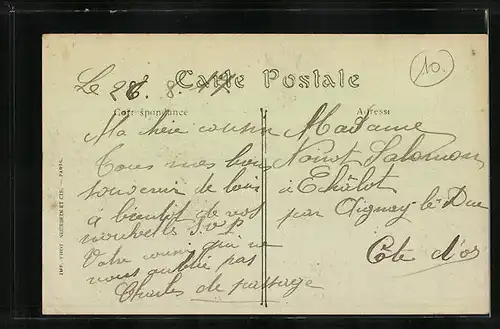 Le 26. 8. 17
Carte Postale
10.
Correspondance
Adresse
Ma chère cousine
Tous mes bons
souvenir de loin
à bientôt de vos
nouvelle S.V.P
Votre cousin qui ne
vous oublié pas
Charles de passage
Madame
Noirot Salomon
à Echâlot
par Aignay-le-Duc
Côte d'or